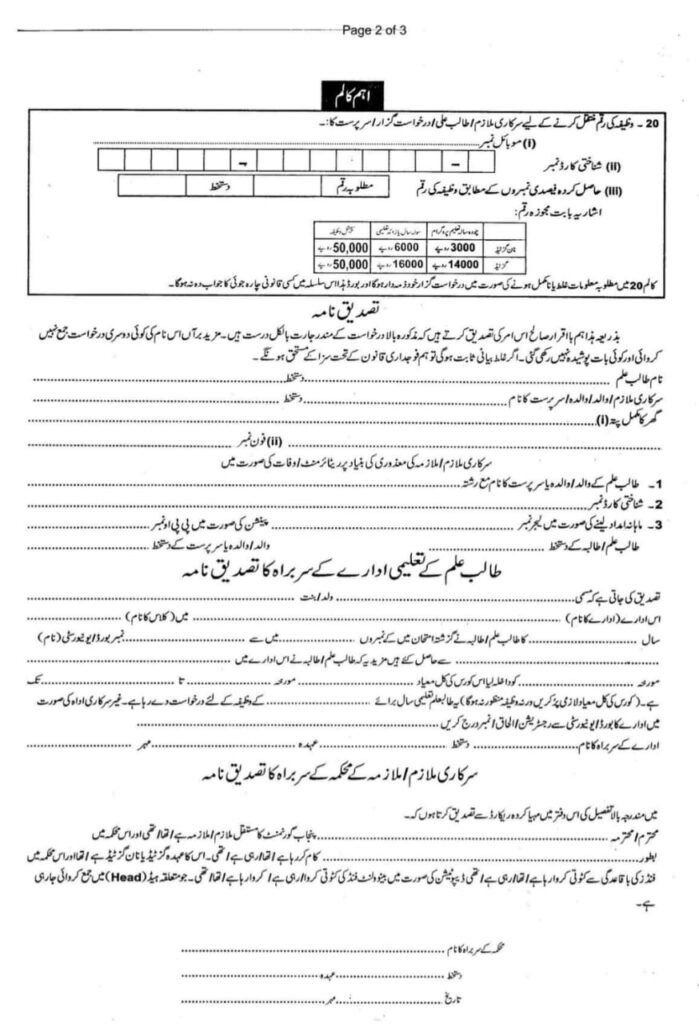 Page 2 of 3
اہم کالم
20 - وظیفہ کی رقم منتقل کرنے کے لیے سرکاری ملازم / طالب علم / درخواست گزار / سرپرست کا:-
(i) موبائل نمبر
(ii) شناختی کارڈ نمبر
(iii) حاصل کردہ فیصدی نمبروں کے مطابق وظیفہ کی رقم مطلوبہ رقم دستخط
اشاریہ بابت مجوزہ رقم:
چودہ سالہ تعلیمی پروگرام سولہ سالہ یا زائد تعلیمی سپیشل وظیفہ
نان گزٹیڈ 3000 روپے 6000 روپے 50,000 روپے
گزٹیڈ 14000 روپے 16000 روپے 50,000 روپے
کالم 20 میں مطلوبہ معلومات غلط یا نامکمل ہونے کی صورت میں درخواست گزار خود ذمہ دار ہوگا اور بورڈ ہذا اس سلسلہ میں کسی قانونی چارہ جوئی کا جواب دہ نہ ہوگا۔
تصدیق نامہ
بذریعہ ہذا ہم با اقرار صالح اس امر کی تصدیق کرتے ہیں کہ مذکورہ بالا درخواست کے مندرجات بالکل درست ہیں۔ مزید برآں اس نام کی کوئی دوسری درخواست جمع نہیں
کروائی اور کوئی بات پوشیدہ نہیں رکھی گئی۔ اگر غلط بیانی ثابت ہوگی تو ہم فوجداری قانون کے تحت سزا کے مستحق ہونگے۔
نام طالب علم دستخط
سرکاری ملازم / والد / والدہ / سرپرست کا نام دستخط
گھر کا مکمل پتہ (i)
(ii) فون نمبر
سرکاری ملازم / ملازمہ کی معذوری کی بنیاد پر ریٹائرمنٹ / وفات کی صورت میں
1- طالب علم کے والد / والدہ یا سرپرست کا نام مع رشتہ
2- شناختی کارڈ نمبر
3- ماہانہ امداد لینے کی صورت میں لیجر نمبر پینشن کی صورت میں پی پی او نمبر
طالب علم / طالبہ کے دستخط والد / والدہ یا سرپرست کے دستخط
طالب علم کے تعلیمی ادارے کے سربراہ کا تصدیق نامہ
تصدیق کی جاتی ہے کہ مسمی ولد / بنت
اس ادارے (ادارے کا نام) میں (کلاس کا نام)
سال کا طالب علم / طالبہ نے گزشتہ امتحان میں کے نمبروں میں سے نمبر بورڈ / یونیورسٹی (نام)
سے حاصل کئے ہیں مزید یہ کہ طالب علم / طالبہ نے اس ادارے میں
مورخہ کو داخلہ لیا اس کورس کی کل معیاد مورخہ تا تک
ہے۔ (کورس کی کل معیاد لازمی پُر کریں ورنہ وظیفہ منظور نہ ہوگا) یہ طالبعلم تعلیمی سال برائے کے وظیفہ کے لئے درخواست دے رہا ہے۔ غیر سرکاری ادارہ کی صورت
میں ادارے کا بورڈ / یونیورسٹی سے رجسٹریشن / الحاق / نمبر درج کریں
ادارے کے سربراہ کا نام دستخط عہدہ مہر
سرکاری ملازم / ملازمہ کے محکمہ کے سربراہ کا تصدیق نامہ
میں مندرجہ بالا تفصیل کی اس دفتر میں مہیا کردہ ریکارڈ سے تصدیق کرتا ہوں کہ۔
محترم / محترمہ پنجاب گورنمنٹ کا مستقل ملازم / ملازمہ ہے / تھا / تھی اور اس محکمہ میں
بطور کام کر رہا ہے / تھا / رہی ہے / تھی۔ اس کا عہدہ گزٹیڈ یا نان گزٹیڈ ہے / تھا اور اس محکمہ میں
فنڈز کی باقاعدگی سے کٹوتی کروا رہا ہے / تھا / رہی ہے / تھی ڈیپوٹیشن کی صورت میں بینوولنٹ فنڈ کی کٹوتی کروا / رہی ہے / کروا رہا ہے / تھا / تھی۔ جو متعلقہ ہیڈ (Head) میں جمع کروائی جا رہی
ہے۔
محکمہ کے سربراہ کا نام
دستخط عہدہ
تاریخ مہر